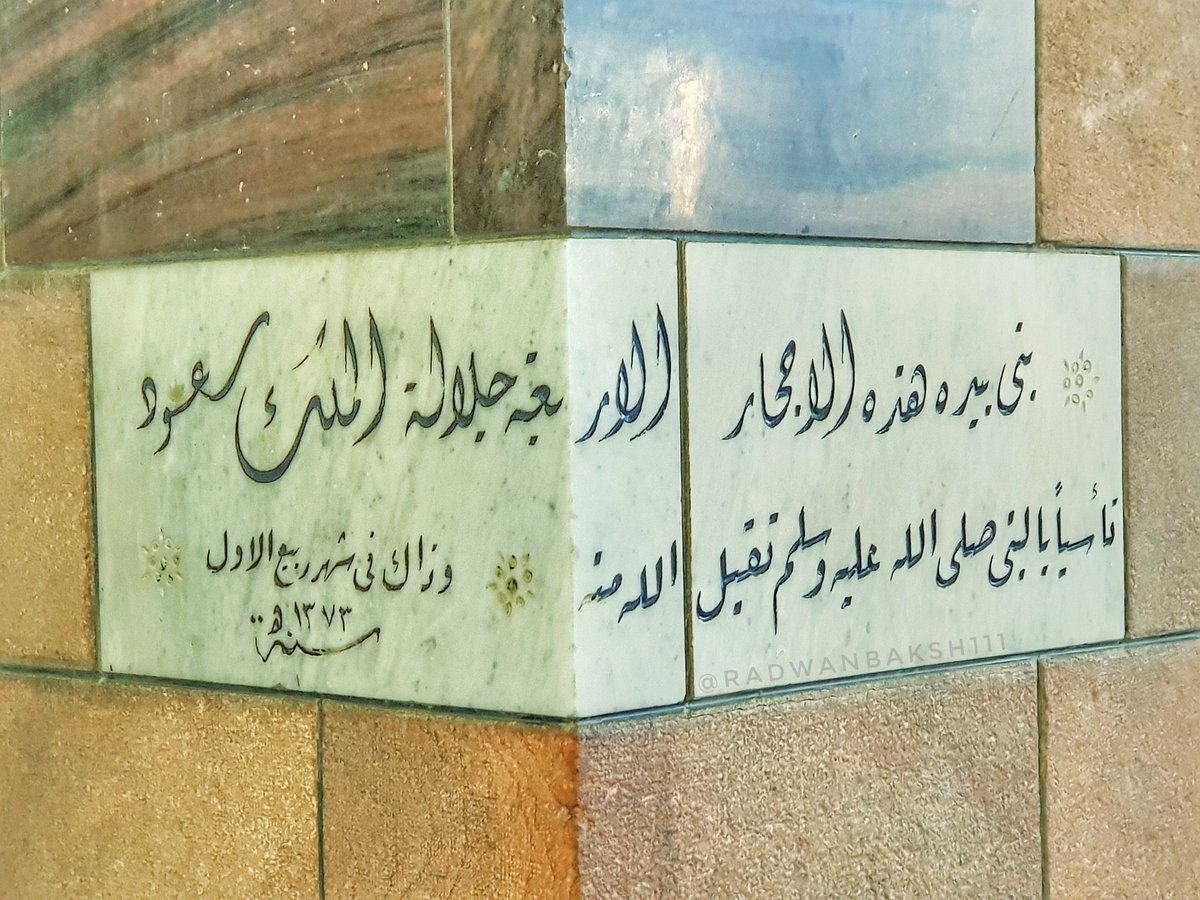 بنى بيده هذه الاحجار الاربعة جلالة الملك سعود
تأسياً بالنبى صلى الله عليه وسلم تقبل الله منه
وذاك فى شهر ربيع الاول
سنة ١٣٧٣ هـ
@RADWANBAKSH111